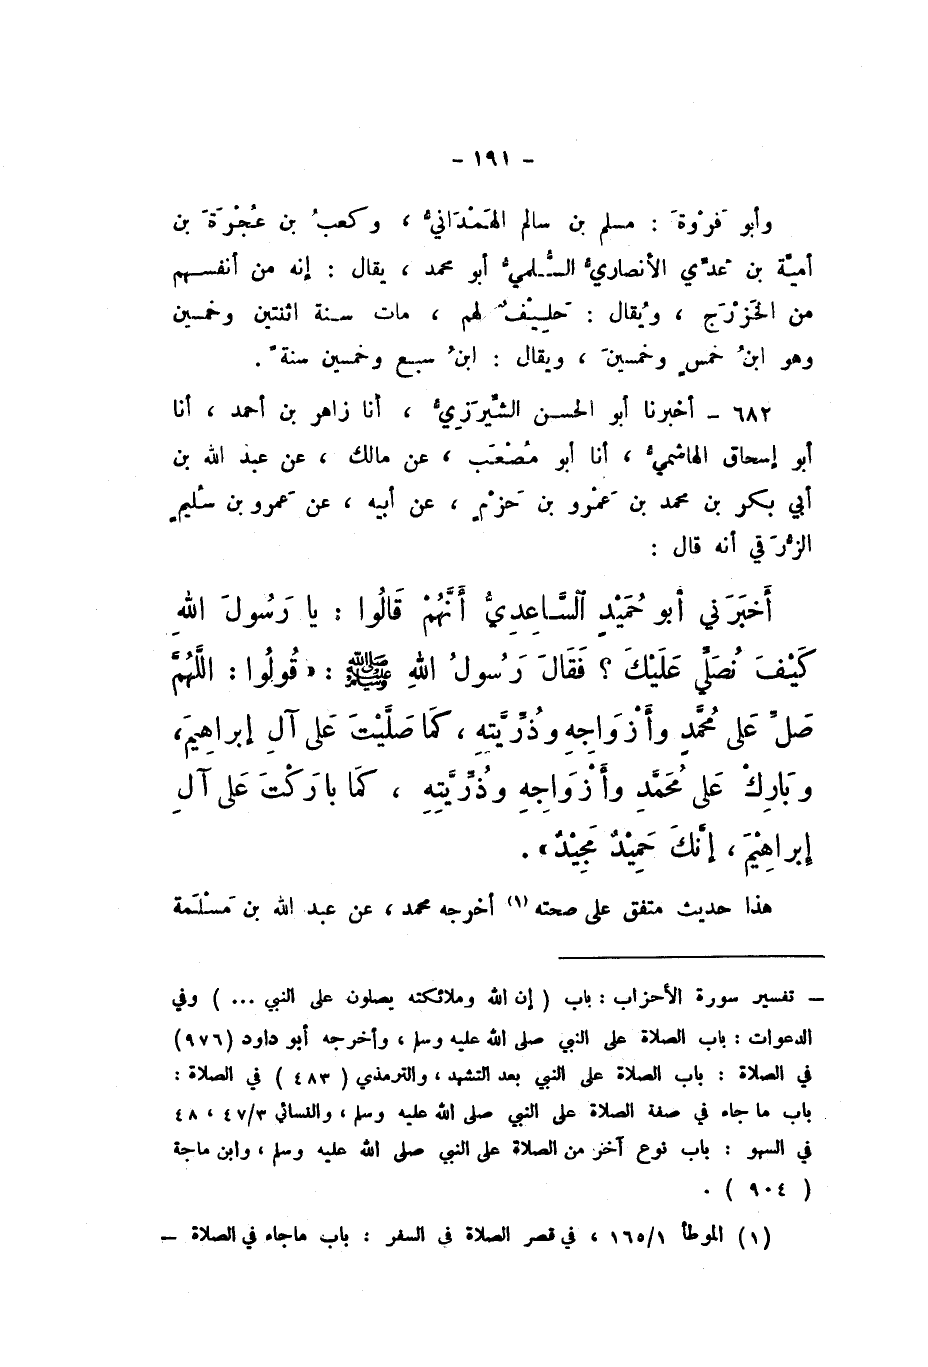 - ١٩١ -
وأبو فَرْوَةَ : مسلم بن سالم الهَمْدَانيُّ ، وكعبُ بن عُجْرَةَ بن
أميَّة بن عَدّي الأنصاريُّ السُّلَميُّ أبو محمد ، يقال : إنه من أنفسهم
من الخَزْرَج ، ويُقال : حَلِيْفٌ لهم ، مات سنة اثنتين وخمسين
وهو ابنُ خمسٍ وخمسينَ ، ويقال : ابنُ سبع وخمسين سنةً .
٦٨٢ – أخبرنا أبو الحسن الشِّيْرَزِيُّ ، أنا زاهر بن أحمد ، أنا
أبو إسحاق الهاشميُّ ، أنا أبو مُصْعَب ، عن مالك ، عن عبد الله بن
أبي بكر بن محمد بن عَمْرو بن حَزْمٍ ، عن أبيه ، عن عَمرو بن سُليمٍ
الزُّرَقي أنه قال :
أَخبَرَني أبو حُمَيْدٍ ٱلسَّاعِدِيُّ أَنَّهُمْ قَالُوا : يا رَسُولَ اللهِ
كَيْفَ نُصَلِّي عَلَيْكَ ؟ فَقَالَ رَسُولُ اللهِ ﷺ : « قُولُوا : اللَّهُمَّ
صَلِّ عَلى مُحَمَّدٍ وأَزْوَاجِهِ وذُرِّيَّتِهِ ، كَمَا صَلَّيْتَ عَلى آلِ إبراهِيمَ،
وَبَارِكْ عَلى مُحَمَّدٍ وأَزْوَاجِهِ وذُرِّيَّتِهِ ، كَمَا بارَكْتَ عَلى آلِ
إِبراهِيْمَ ، إِنَّكَ حَمِيْدٌ مَجِيْدٌ » .
هذا حديث متفق على صحته (١) أخرجه محمد ، عن عبد الله بن مَسْلَمَة
– تفسير سورة الأحزاب : باب ( إن الله وملائكته يصلون على النبي ... ) وفي
الدعوات : باب الصلاة على النبي صلى الله عليه وسلم ، وأخرجه أبو داود (٩٧٦)
في الصلاة : باب الصلاة على النبي بعد التشهد ، والترمذي ( ٤٨٣ ) في الصلاة :
باب ما جاء في صفة الصلاة على النبي صلى الله عليه وسلم ، والنسائي ٤٧/٣ ، ٤٨
في السهو : باب نوع آخر من الصلاة على النبي صلى الله عليه وسلم ، وابن ماجة
( ٩٠٤ ) .
(١) الموطأ ١٦٥/١ ، في قصر الصلاة في السفر : باب ماجاء في الصلاة –